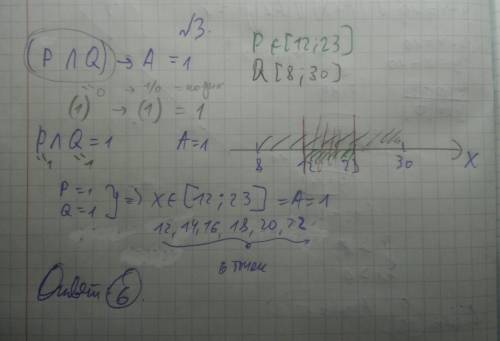 √3.
(P ∧ Q) → A = 1
P ∈ [12; 23]
Q [8; 30]
(1) → (1) = 1
P ∧ Q = 1   A = 1
"1 "1
8 12 23 30 X
P = 1
Q = 1 } => X ∈ [12; 23] = A = 1
12, 14, 16, 18, 20, 22
6 точек
Ответ: 6.